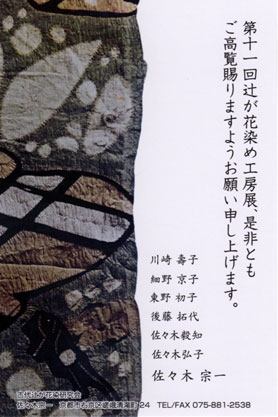 第十一回辻が花染め工房展、是非とも
ご高覧賜りますようお願い申し上げます。
川崎 壽子
細野 京子
東野 初子
後藤 拓代
佐々木毅知
佐々木弘子
佐々木 宗一
古代辻が花染研究会
佐々木宗一 京都市右京区嵯峨 24 TEL/FAX 075-881-2538